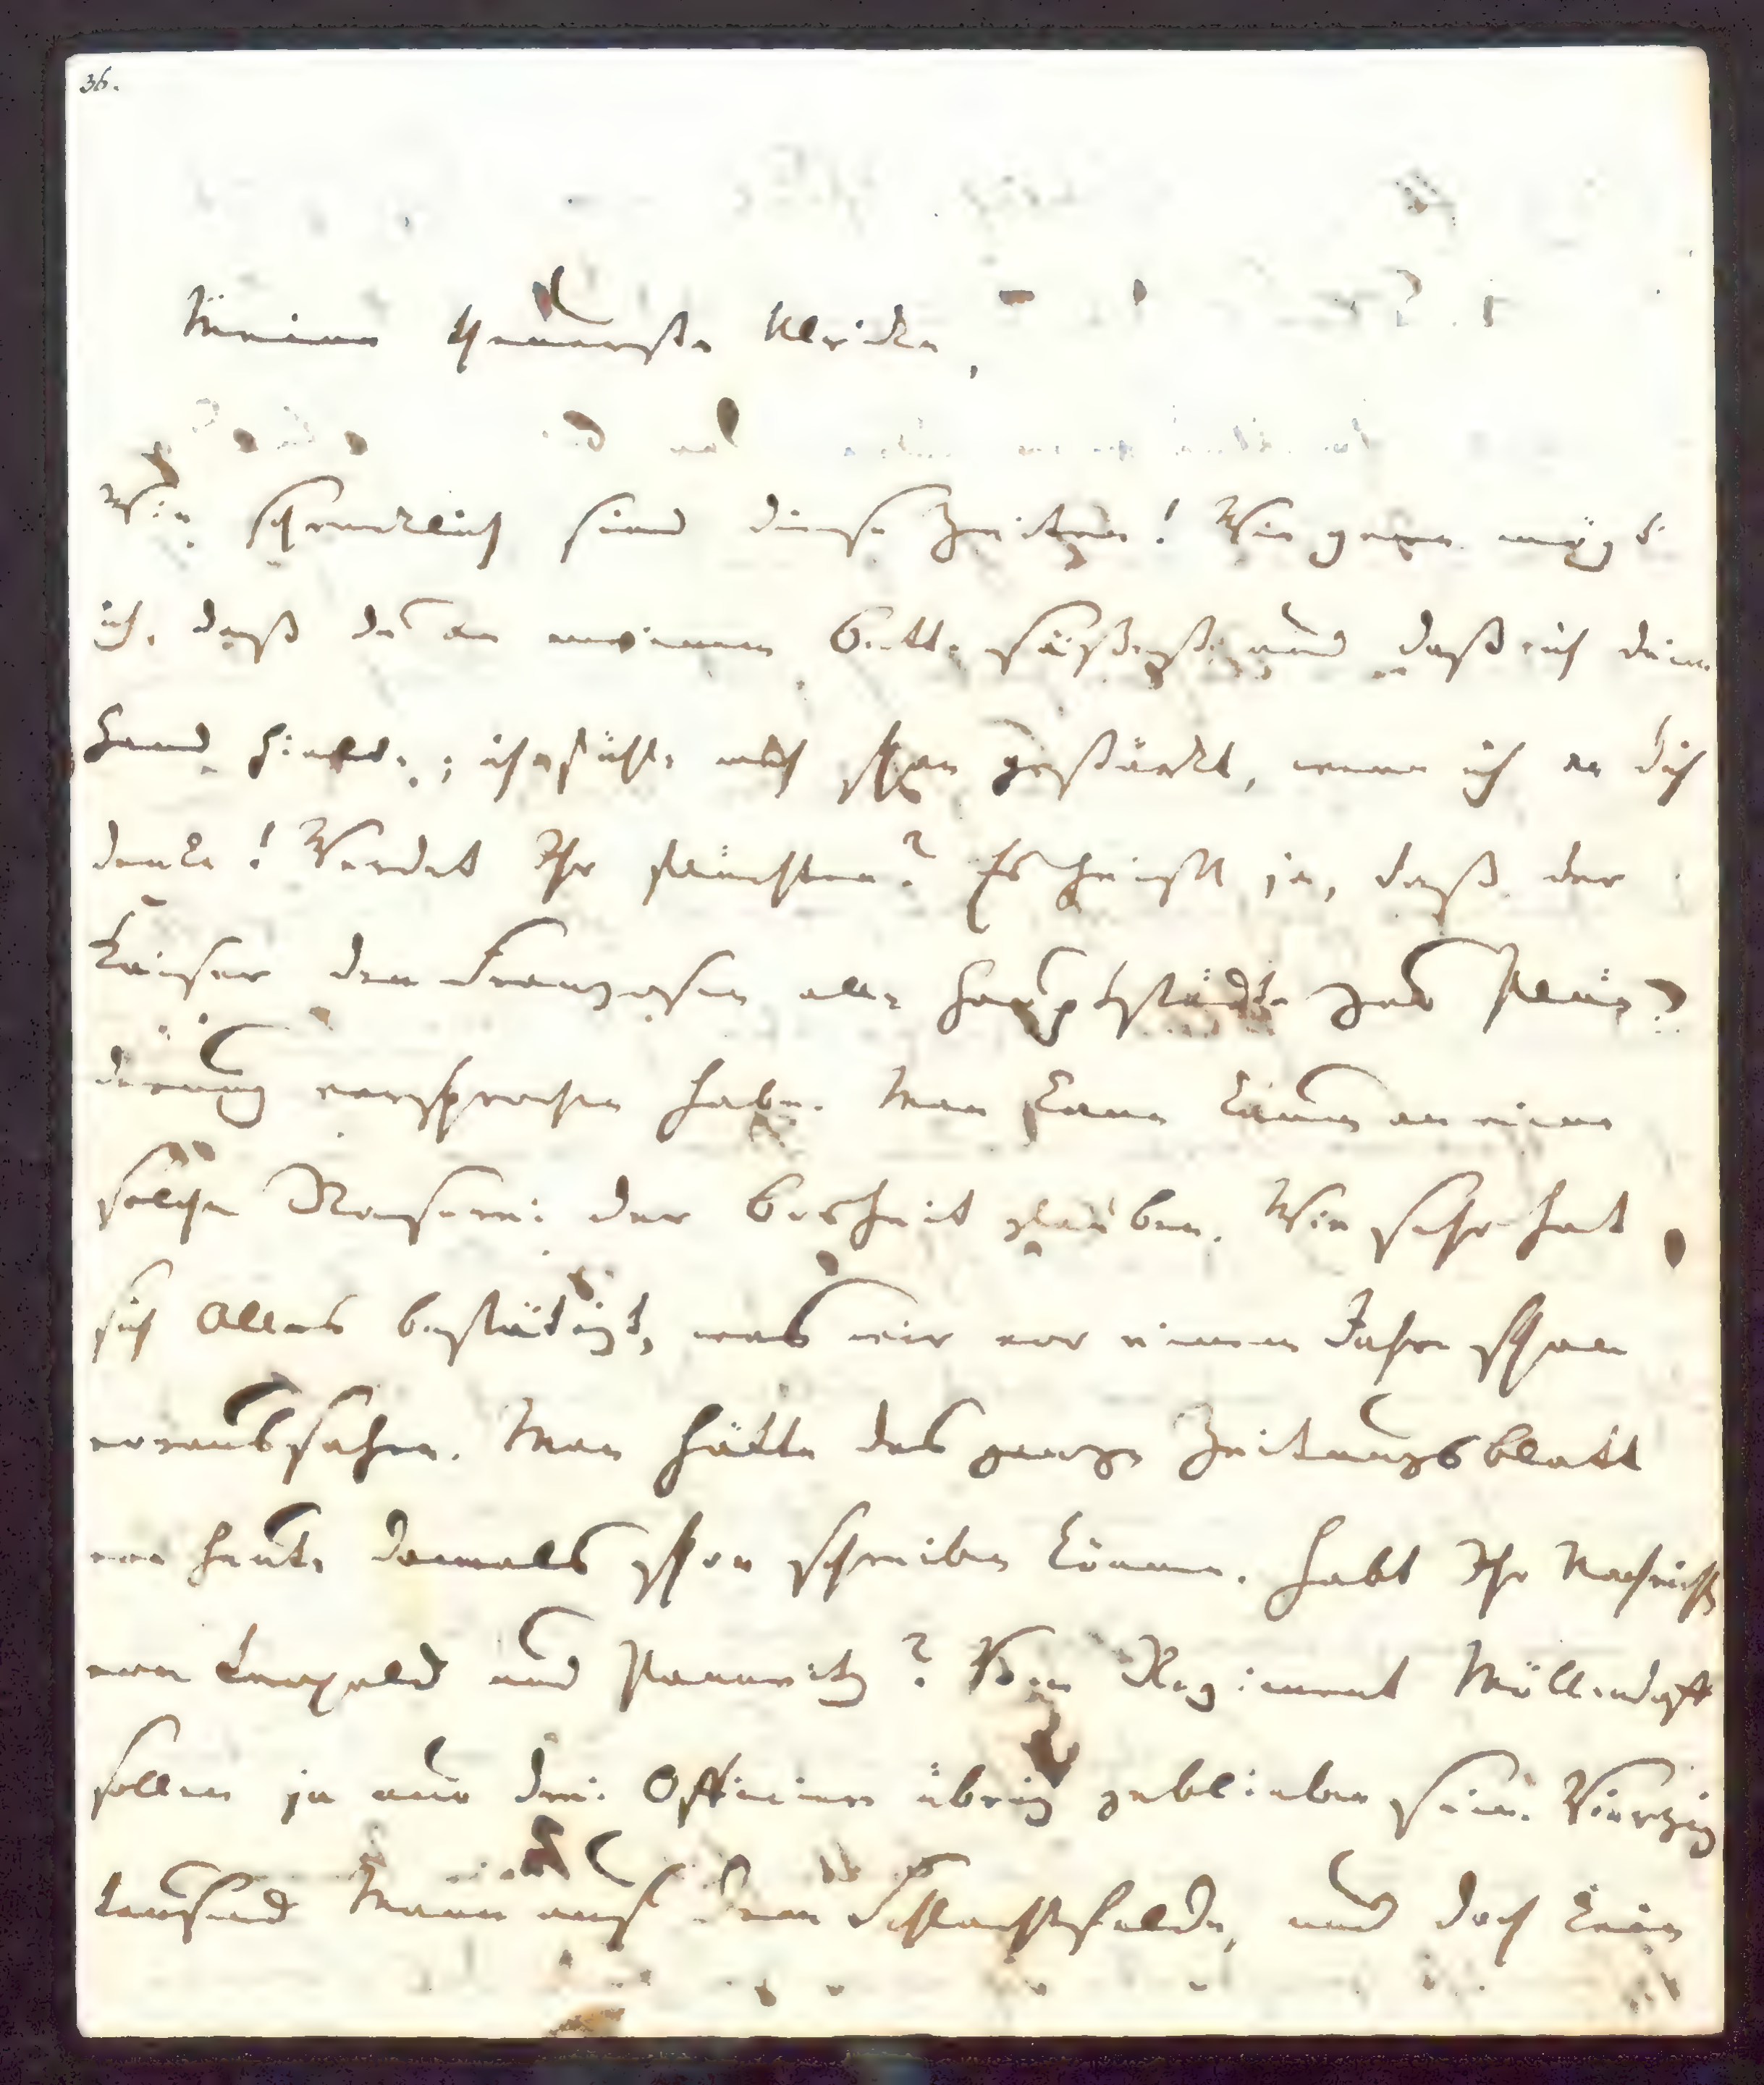 36.
Meine theuerste Ulrike,
Wie schrecklich sind diese Zeiten! Wie gern mögt
ich, daß du an meinem Bette säßest, und daß ich deine
Hand hielte; ich fühle mich schon gestärkt, wenn ich an dich
denke! Werdet Ihr flüchten? Es heißt ja, daß der
Kaiser den Franzosen alle Hauptstädte zur Plün-
derung versprochen habe. Man kann kaum an eine
solche Raserei der Bosheit glauben. Wie sehr hat
sich Alles bestätigt, was wir vor einem Jahre schon
voraussahen. Man hätte das ganze Zeitungsblatt
von heute damals schon schreiben können. Habt Ihr Nachricht
von Leopold und Pannwitz? Vom Regiment Möllendorff
sollen ja nur drei Officiere übrig geblieben sein. Vierzig
tausend Mann auf dem Schlachtfelde, und doch kein